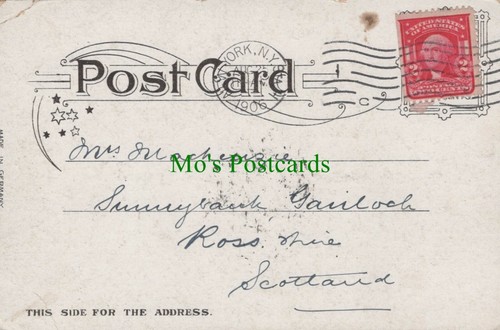 YORK, N.Y.
1906
C
UNITED STATES
OF AMERICA
2 2
POST CARD
MADE IN GERMANY
Mrs Mackenzie
Mo's Postcards
Sunnybank Gairloch
Ross shire
Scotland
THIS SIDE FOR THE ADDRESS.